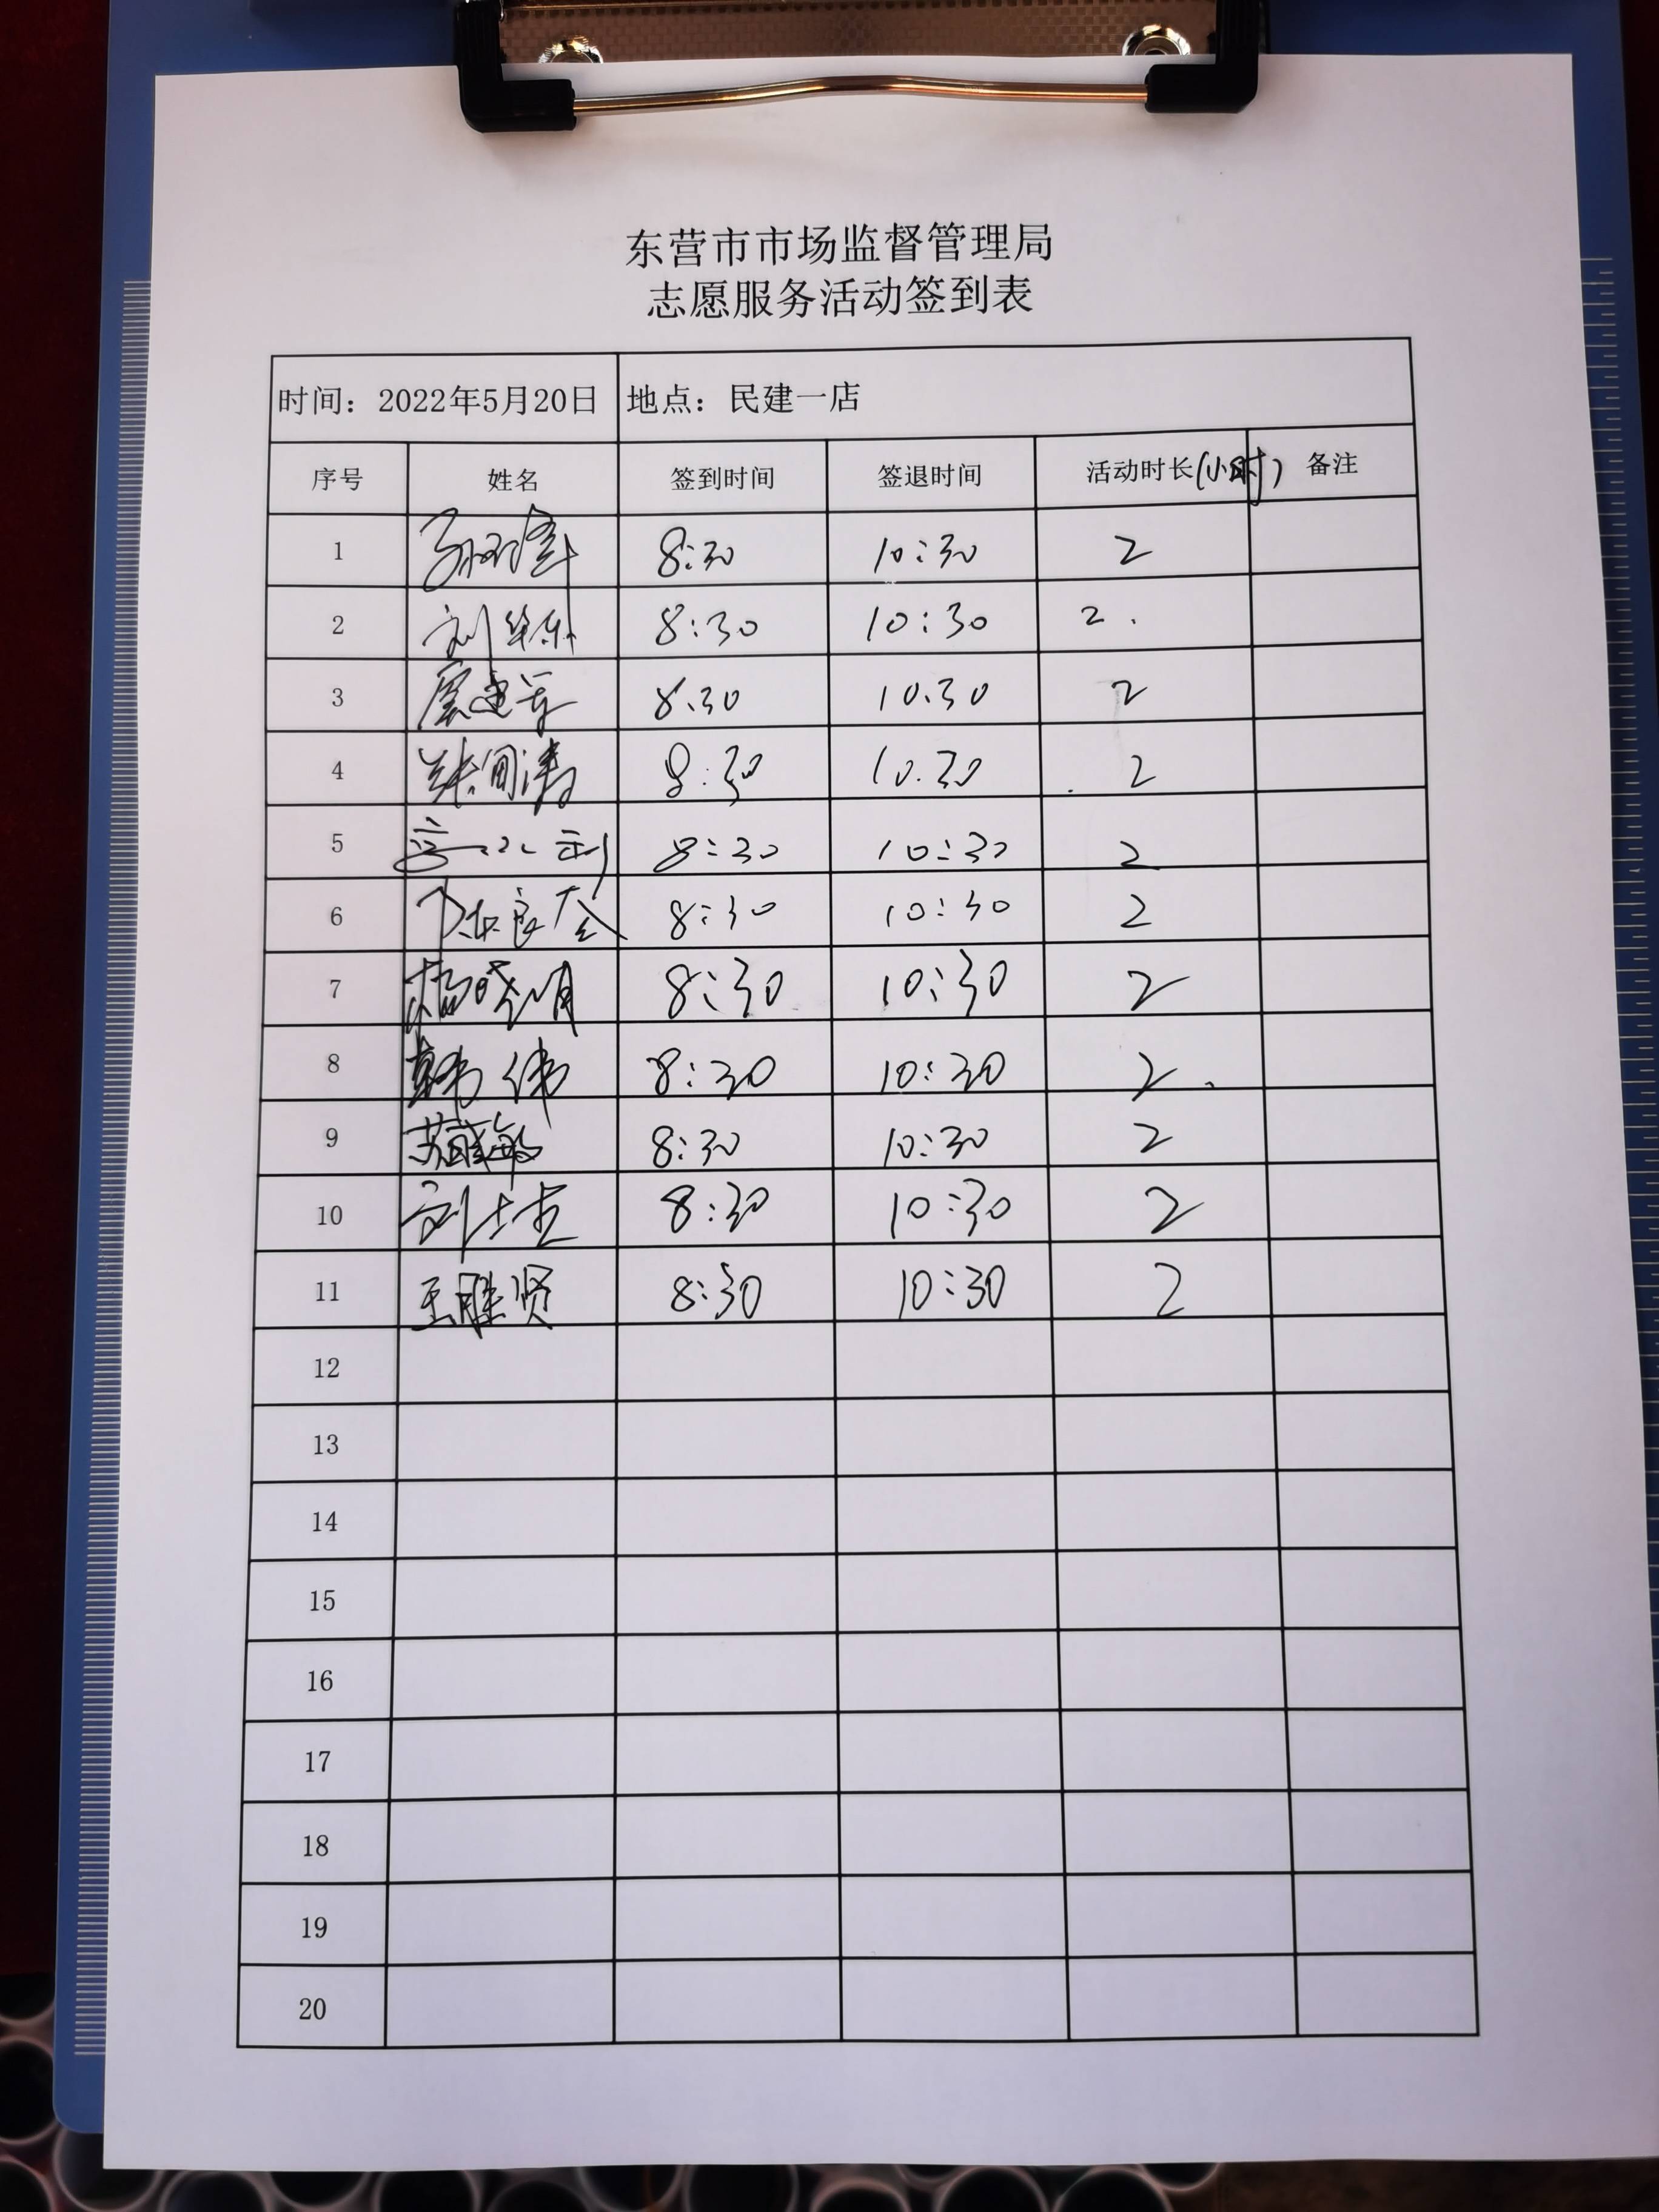 东营市市场监督管理局
志愿服务活动签到表
时间：2022年5月20日 地点：民建一店
序号 姓名 签到时间 签退时间 活动时长(小时) 备注
1 8:30 10:30 2
2 刘华东 8:30 10:30 2.
3 8.30 10.30 2
4 8:30 10.30 2
5 8:30 10:30 2
6 8:30 10:30 2
7 杨晓明 8:30 10:30 2
8 韩伟 8:30 10:30 2.
9 8:30 10:30 2
10 刘士杰 8:30 10:30 2
11 王胜贤 8:30 10:30 2
12
13
14
15
16
17
18
19
20